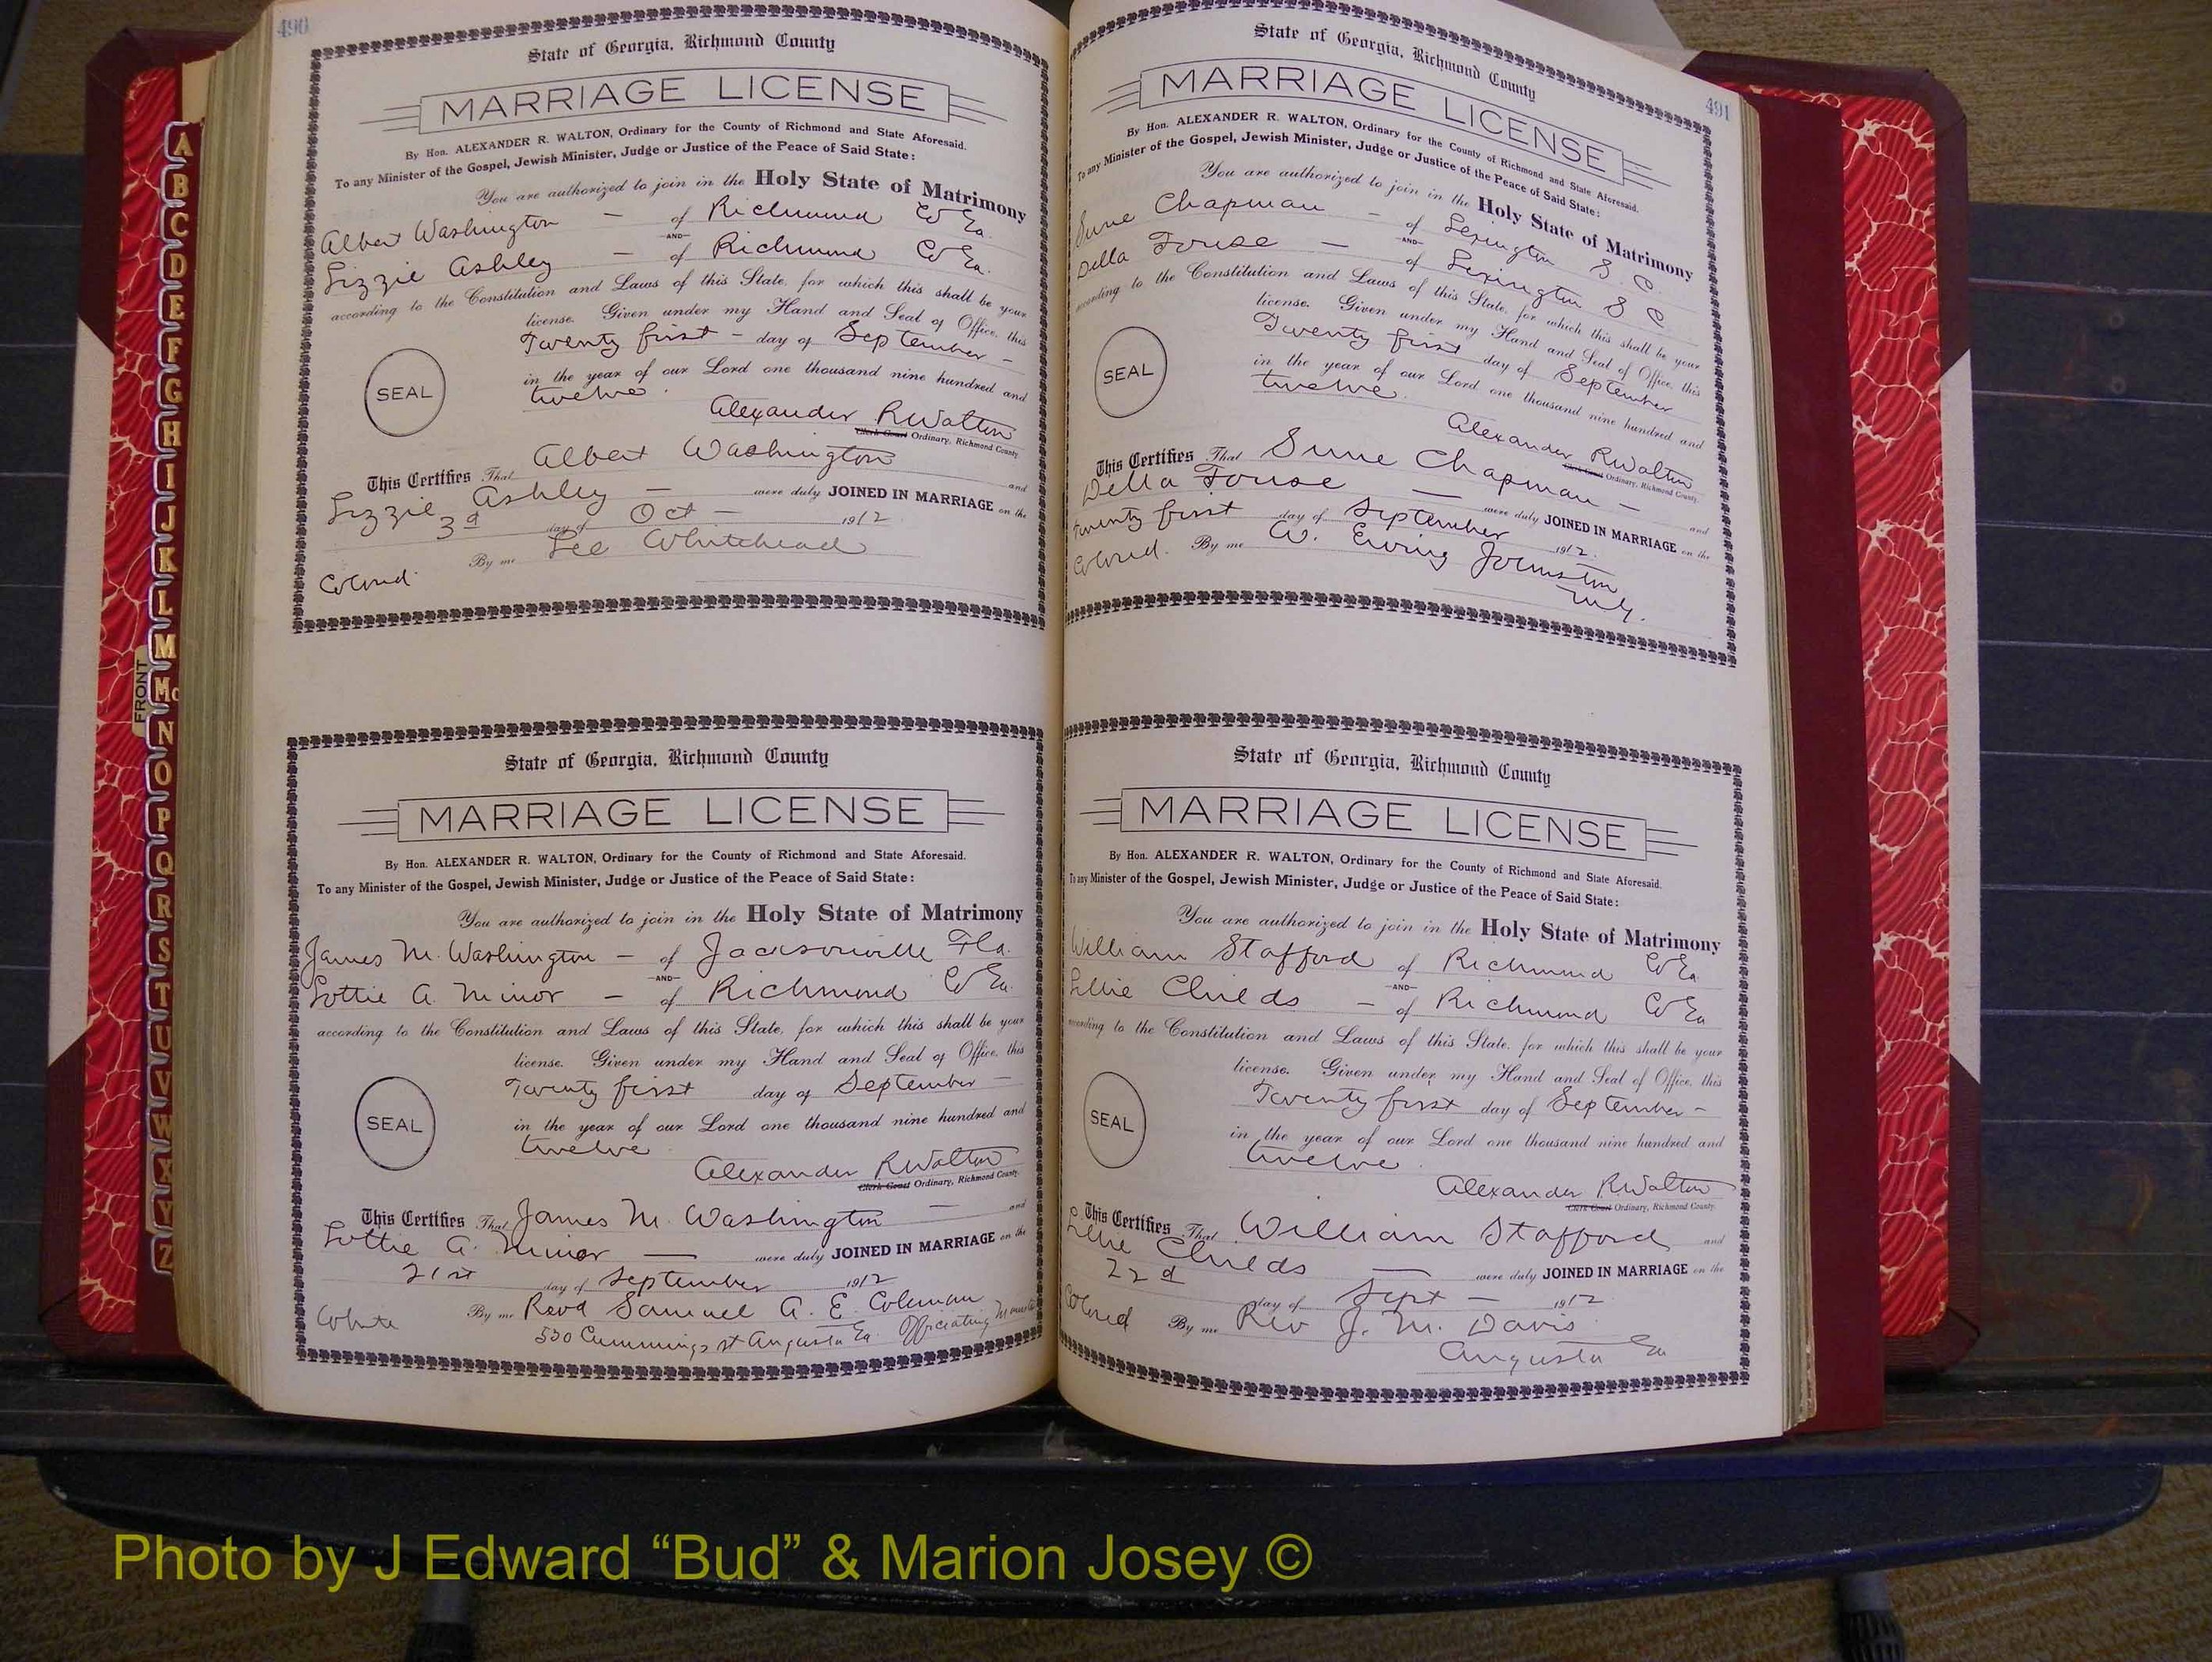 490
State of Georgia, Richmond County
MARRIAGE LICENSE
By Hon. ALEXANDER R. WALTON, Ordinary for the County of Richmond and State Aforesaid.
To any Minister of the Gospel, Jewish Minister, Judge or Justice of the Peace of Said State:
You are authorized to join in the Holy State of Matrimony
Albert Washington — of Richmond Co Ga.
AND
Lizzie Ashley — of Richmond Co Ga.
according to the Constitution and Laws of this State, for which this shall be your
license. Given under my Hand and Seal of Office, this
Twenty first — day of September —
in the year of our Lord one thousand nine hundred and
twelve.
SEAL
Alexander R Walton
Clerk Court Ordinary, Richmond County
This Certifies That Albert Washington and
Lizzie Ashley — were duly JOINED IN MARRIAGE on the
3d day of Oct — 1912
By me Lee Whitehead
Colored
State of Georgia, Richmond County
MARRIAGE LICENSE
By Hon. ALEXANDER R. WALTON, Ordinary for the County of Richmond and State Aforesaid.
To any Minister of the Gospel, Jewish Minister, Judge or Justice of the Peace of Said State:
You are authorized to join in the Holy State of Matrimony
James M. Washington — of Jacksonville Fla.
AND
Lottie A. Minor — of Richmond Co Ga.
according to the Constitution and Laws of this State, for which this shall be your
license. Given under my Hand and Seal of Office, this
Twenty first day of September —
in the year of our Lord one thousand nine hundred and
twelve
SEAL
Alexander R Walton
Clerk Court Ordinary, Richmond County
This Certifies That James M. Washington — and
Lottie A. Minor — were duly JOINED IN MARRIAGE on the
21st day of September 1912
By me Revd Samuel A. E. Coleman
White
530 Cummings st Augusta Ga. Officiating
491
State of Georgia, Richmond County
MARRIAGE LICENSE
By Hon. ALEXANDER R. WALTON, Ordinary for the County of Richmond and State Aforesaid.
To any Minister of the Gospel, Jewish Minister, Judge or Justice of the Peace of Said State:
You are authorized to join in the Holy State of Matrimony
Chapman — of Lexington S. C.
AND
Della Fouse — of Lexington S C
according to the Constitution and Laws of this State, for which this shall be your
license. Given under my Hand and Seal of Office, this
Twenty first day of September
in the year of our Lord one thousand nine hundred and
twelve.
SEAL
Alexander R Walton
Clerk Court Ordinary, Richmond County
This Certifies That Chapman — and
Della Fouse — were duly JOINED IN MARRIAGE on the
twenty first day of September 1912.
Colored. By me W. Ewing Johnston
State of Georgia, Richmond County
MARRIAGE LICENSE
By Hon. ALEXANDER R. WALTON, Ordinary for the County of Richmond and State Aforesaid.
To any Minister of the Gospel, Jewish Minister, Judge or Justice of the Peace of Said State:
You are authorized to join in the Holy State of Matrimony
William Stafford of Richmond Co Ga
AND
Lillie Childs — of Richmond Co Ga
according to the Constitution and Laws of this State, for which this shall be your
license. Given under my Hand and Seal of Office, this
Twenty first day of September —
in the year of our Lord one thousand nine hundred and
twelve.
SEAL
Alexander R Walton
Clerk Court Ordinary, Richmond County
This Certifies That William Stafford and
Lillie Childs — were duly JOINED IN MARRIAGE on the
22d day of Sept — 1912
Colored By me Rev J. M. Davis
Augusta Ga
FRONT
A
B
C
D
E
F
G
H
I
J
K
L
M
Mc
N
O
P
Q
R
S
T
U
V
W
X
Y
Z
Photo by J Edward “Bud” & Marion Josey ©